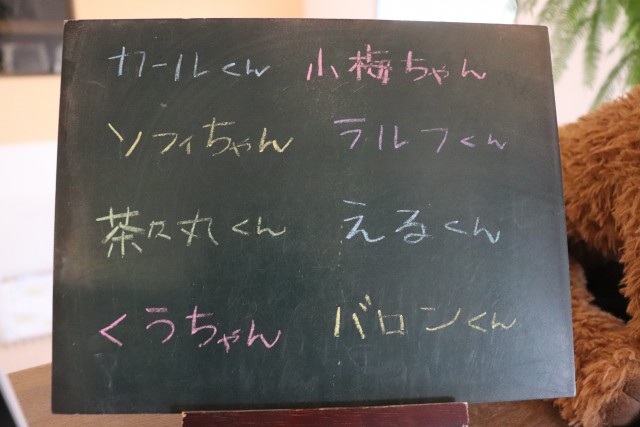 カールくん 小梅ちゃん
ソフィちゃん ラルフくん
茶々丸くん えるくん
くうちゃん バロンくん